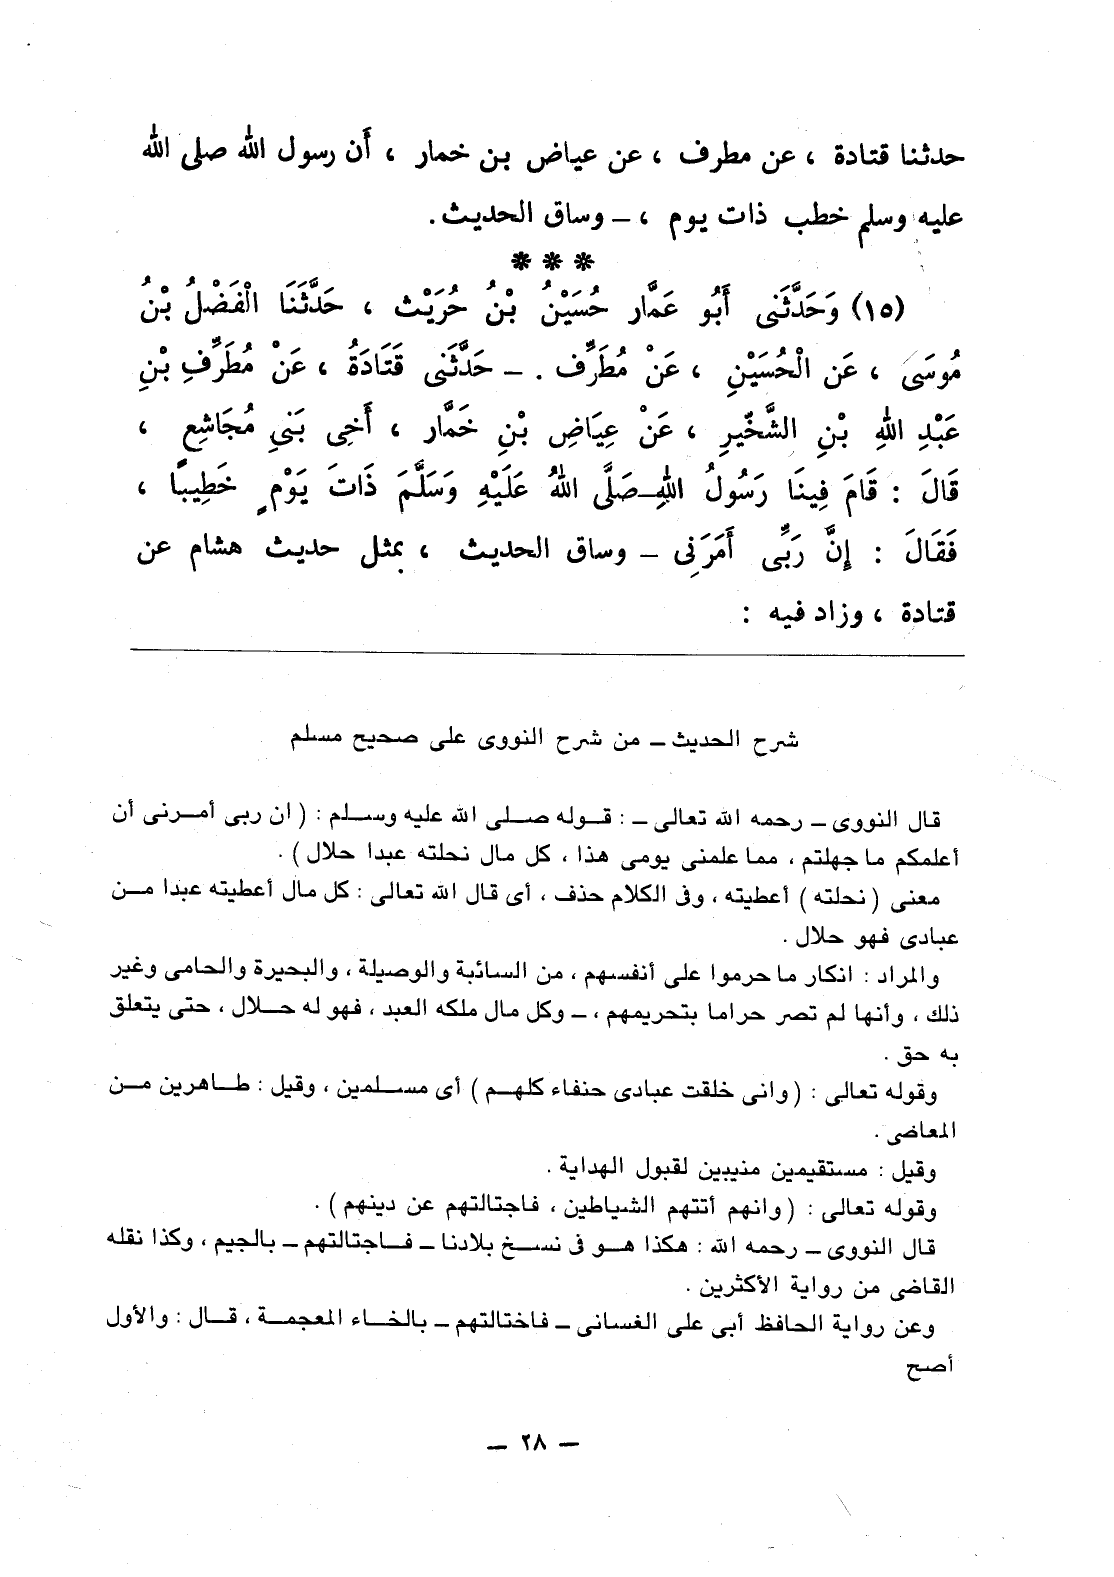 حدثنا قتادة ، عن مطرف ، عن عياض بن خمار ، أن رسول الله صلى الله
عليه وسلم خطب ذات يوم ، ــ وساق الحديث .
* * *
(١٥) وَحَدَّثَنى أَبُو عَمَّار حُسَيْنُ بْنُ حُرَيْث ، حَدَّثَنَا الْفَضْلُ بْنُ
مُوسَى ، عَن الْحُسَيْنِ ، عَنْ مُطَرِّف . ــ حَدَّثَنى قَتَادَةُ ، عَنْ مُطَرِّفِ بْنِ
عَبْدِ اللهِ بْنِ الشَّخِّيرِ ، عَنْ عِيَاضِ بْنِ خَمَّار ، أَخِى بَنِي مُجَاشِعٍ ،
قَالَ : قَامَ فِينَا رَسُولُ اللهِ ــ صَلَّى اللهُ عَلَيْهِ وَسَلَّمَ ذَاتَ يَوْمٍ خَطِيبًا ،
فَقَالَ : إِنَّ رَبِّى أَمَرَنِى ــ وساق الحديث ، بمثل حديث هشام عن
قتادة ، وزاد فيه :
شرح الحديث ــ من شرح النووى على صحيح مسلم
قال النووى ــ رحمه الله تعالى ــ : قوله صلى الله عليه وسلم : ( ان ربى أمرنى أن
أعلمكم ما جهلتم ، مما علمنى يومى هذا ، كل مال نحلته عبدا حلال ) .
معنى ( نحلته ) أعطيته ، وفى الكلام حذف ، أى قال الله تعالى : كل مال أعطيته عبدا من
عبادى فهو حلال .
والمراد : انكار ما حرموا على أنفسهم ، من السائبة والوصيلة ، والبحيرة والحامى وغير
ذلك ، وأنها لم تصر حراما بتحريمهم ، ــ وكل مال ملكه العبد ، فهو له حلال ، حتى يتعلق
به حق .
وقوله تعالى : ( وانى خلقت عبادى حنفاء كلهم ) أى مسلمين ، وقيل : طاهرين من
المعاضى .
وقيل : مستقيمين منيبين لقبول الهداية .
وقوله تعالى : ( وانهم أتتهم الشياطين ، فاجتالتهم عن دينهم ) .
قال النووى ــ رحمه الله : هكذا هو فى نسخ بلادنا ــ فاجتالتهم ــ بالجيم ، وكذا نقله
القاضى من رواية الأكثرين .
وعن رواية الحافظ أبى على الغسانى ــ فاختالتهم ــ بالخاء المعجمة ، قال : والأول
أصح
ــ ٢٨ ــ